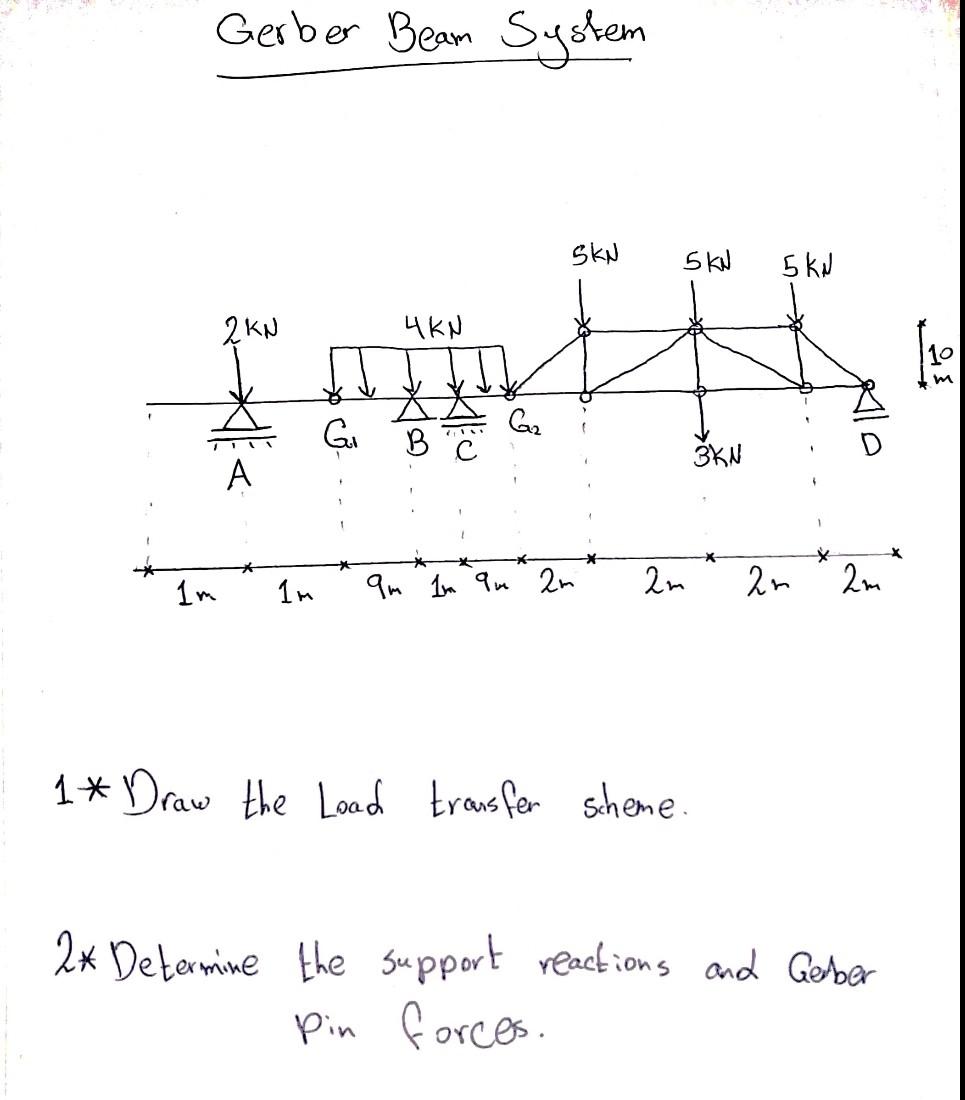 Gerber Beam System
5KN
5KN
5KN
2KN
4KN
10
m
G1
B
C
G2
3KN
D
A
1m
1m
9m
1m
9m
2m
2m
2m
2m
1* Draw the Load transfer scheme.
2* Determine the support reactions and Gerber
Pin forces.